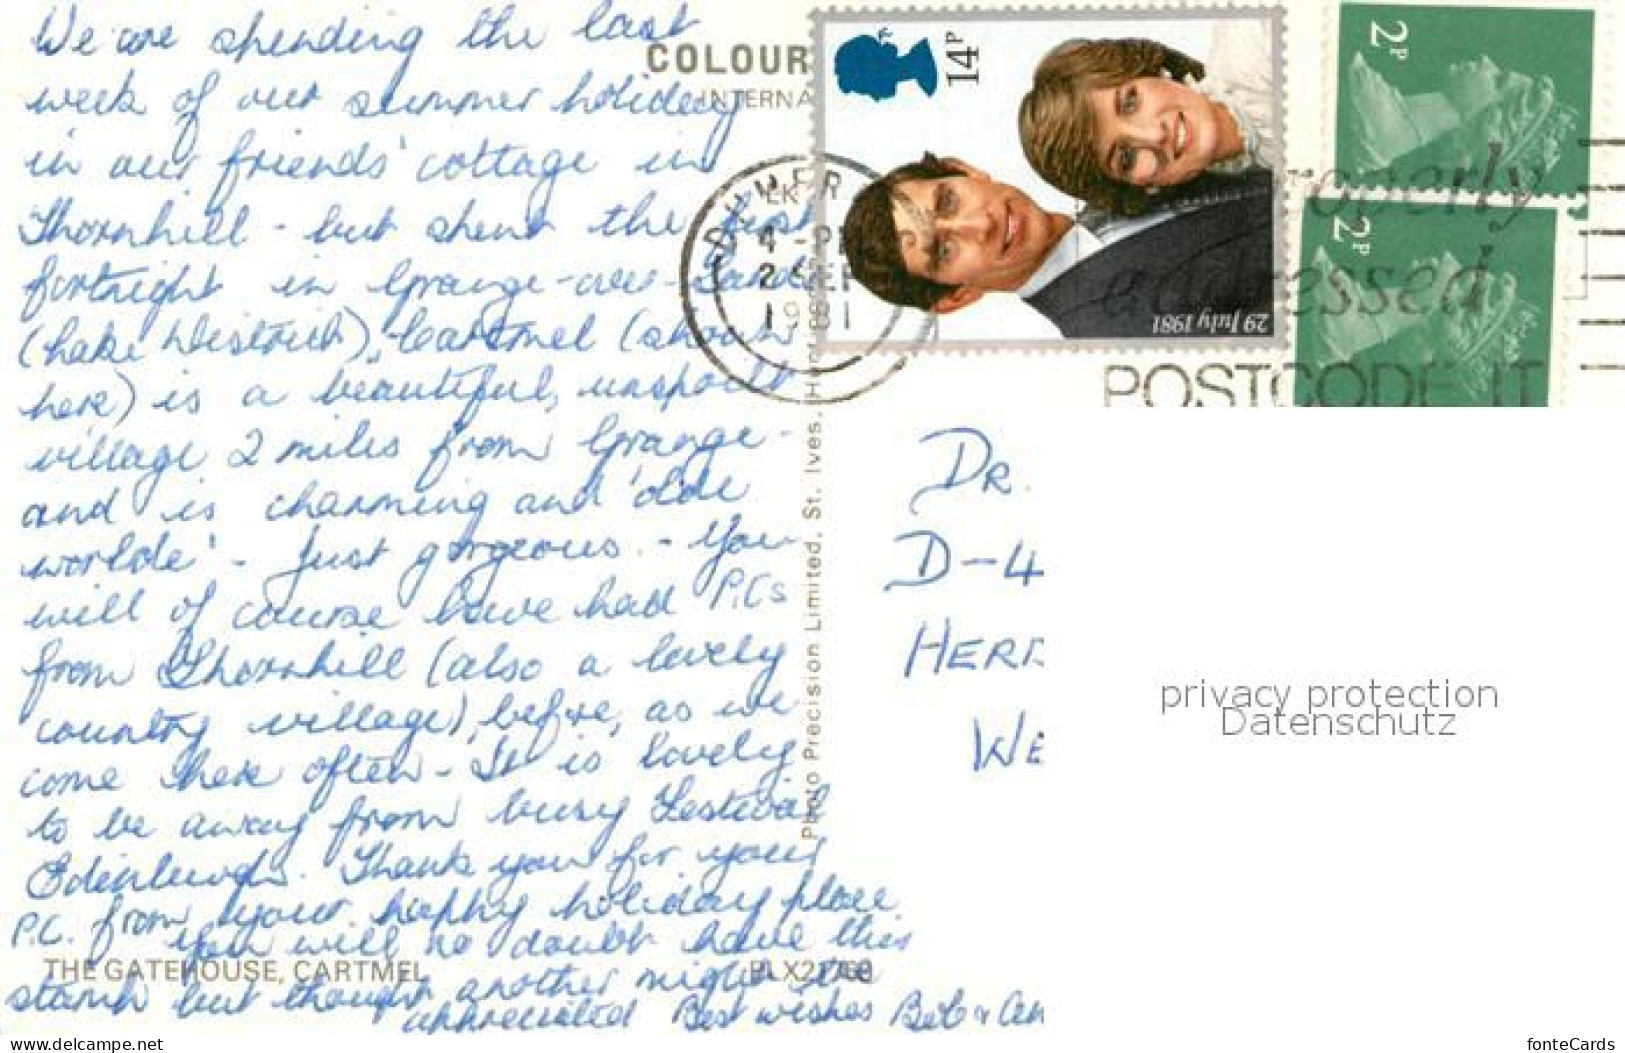 We are spending the last
week of our summer holiday
in our friends' cottage in
Thornhill - but spent the first
fortnight in Grange-over-Sands
(Lake District). Cartmel (shown
here) is a beautiful, unspoilt
village 2 miles from Grange -
and is charming and 'olde
worlde' - just gorgeous. - You
will of course have had P.Cs
from Thornhill (also a lovely
country village), before, as we
come here often - It is lovely
to be away from busy Festival
Edinburgh. Thank you for your
P.C. from your happy holiday place.
You will no doubt have this
stamp but thought another might be
appreciated Best wishes
COLOUR
INTERNA
THE GATEHOUSE, CARTMEL
PLX21768
Photo Precision Limited, St. Ives, Hunt
4 - P
2 SEP
1981
14P
29 July 1981
2P
2P
properly
addressed
POSTCODE IT
DR.
D-4
HER
WE
privacy protection
Datenschutz
www.delcampe.net
fonteCards